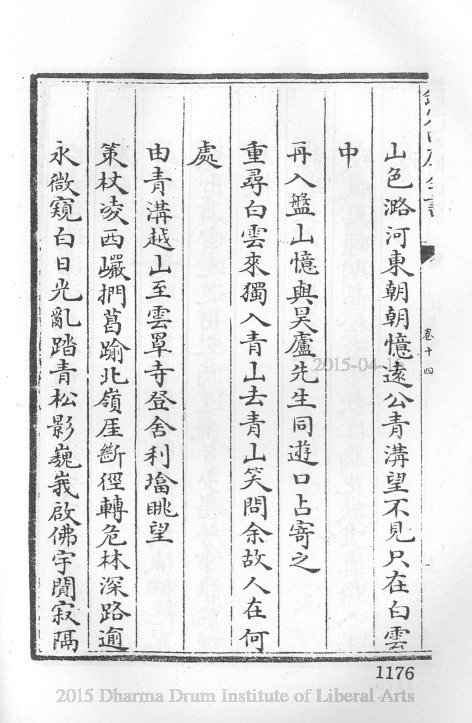 卷十四
山色潞河東朝朝憶遠公青溝望不見只在白雲
中
再入盤山憶與吴廬先生同遊口占寄之
重尋白雲來獨入青山去青山笑問余故人在何
處
由青溝越山至雲罩寺登舍利塔眺望
策杖凌西巘捫葛踰北嶺厓斷徑轉危林深路逾
永微窺白日光亂踏青松影巍峩啟佛宇閴寂隔
1176
2015-04
2015 Dharma Drum Institute of Liberal Arts